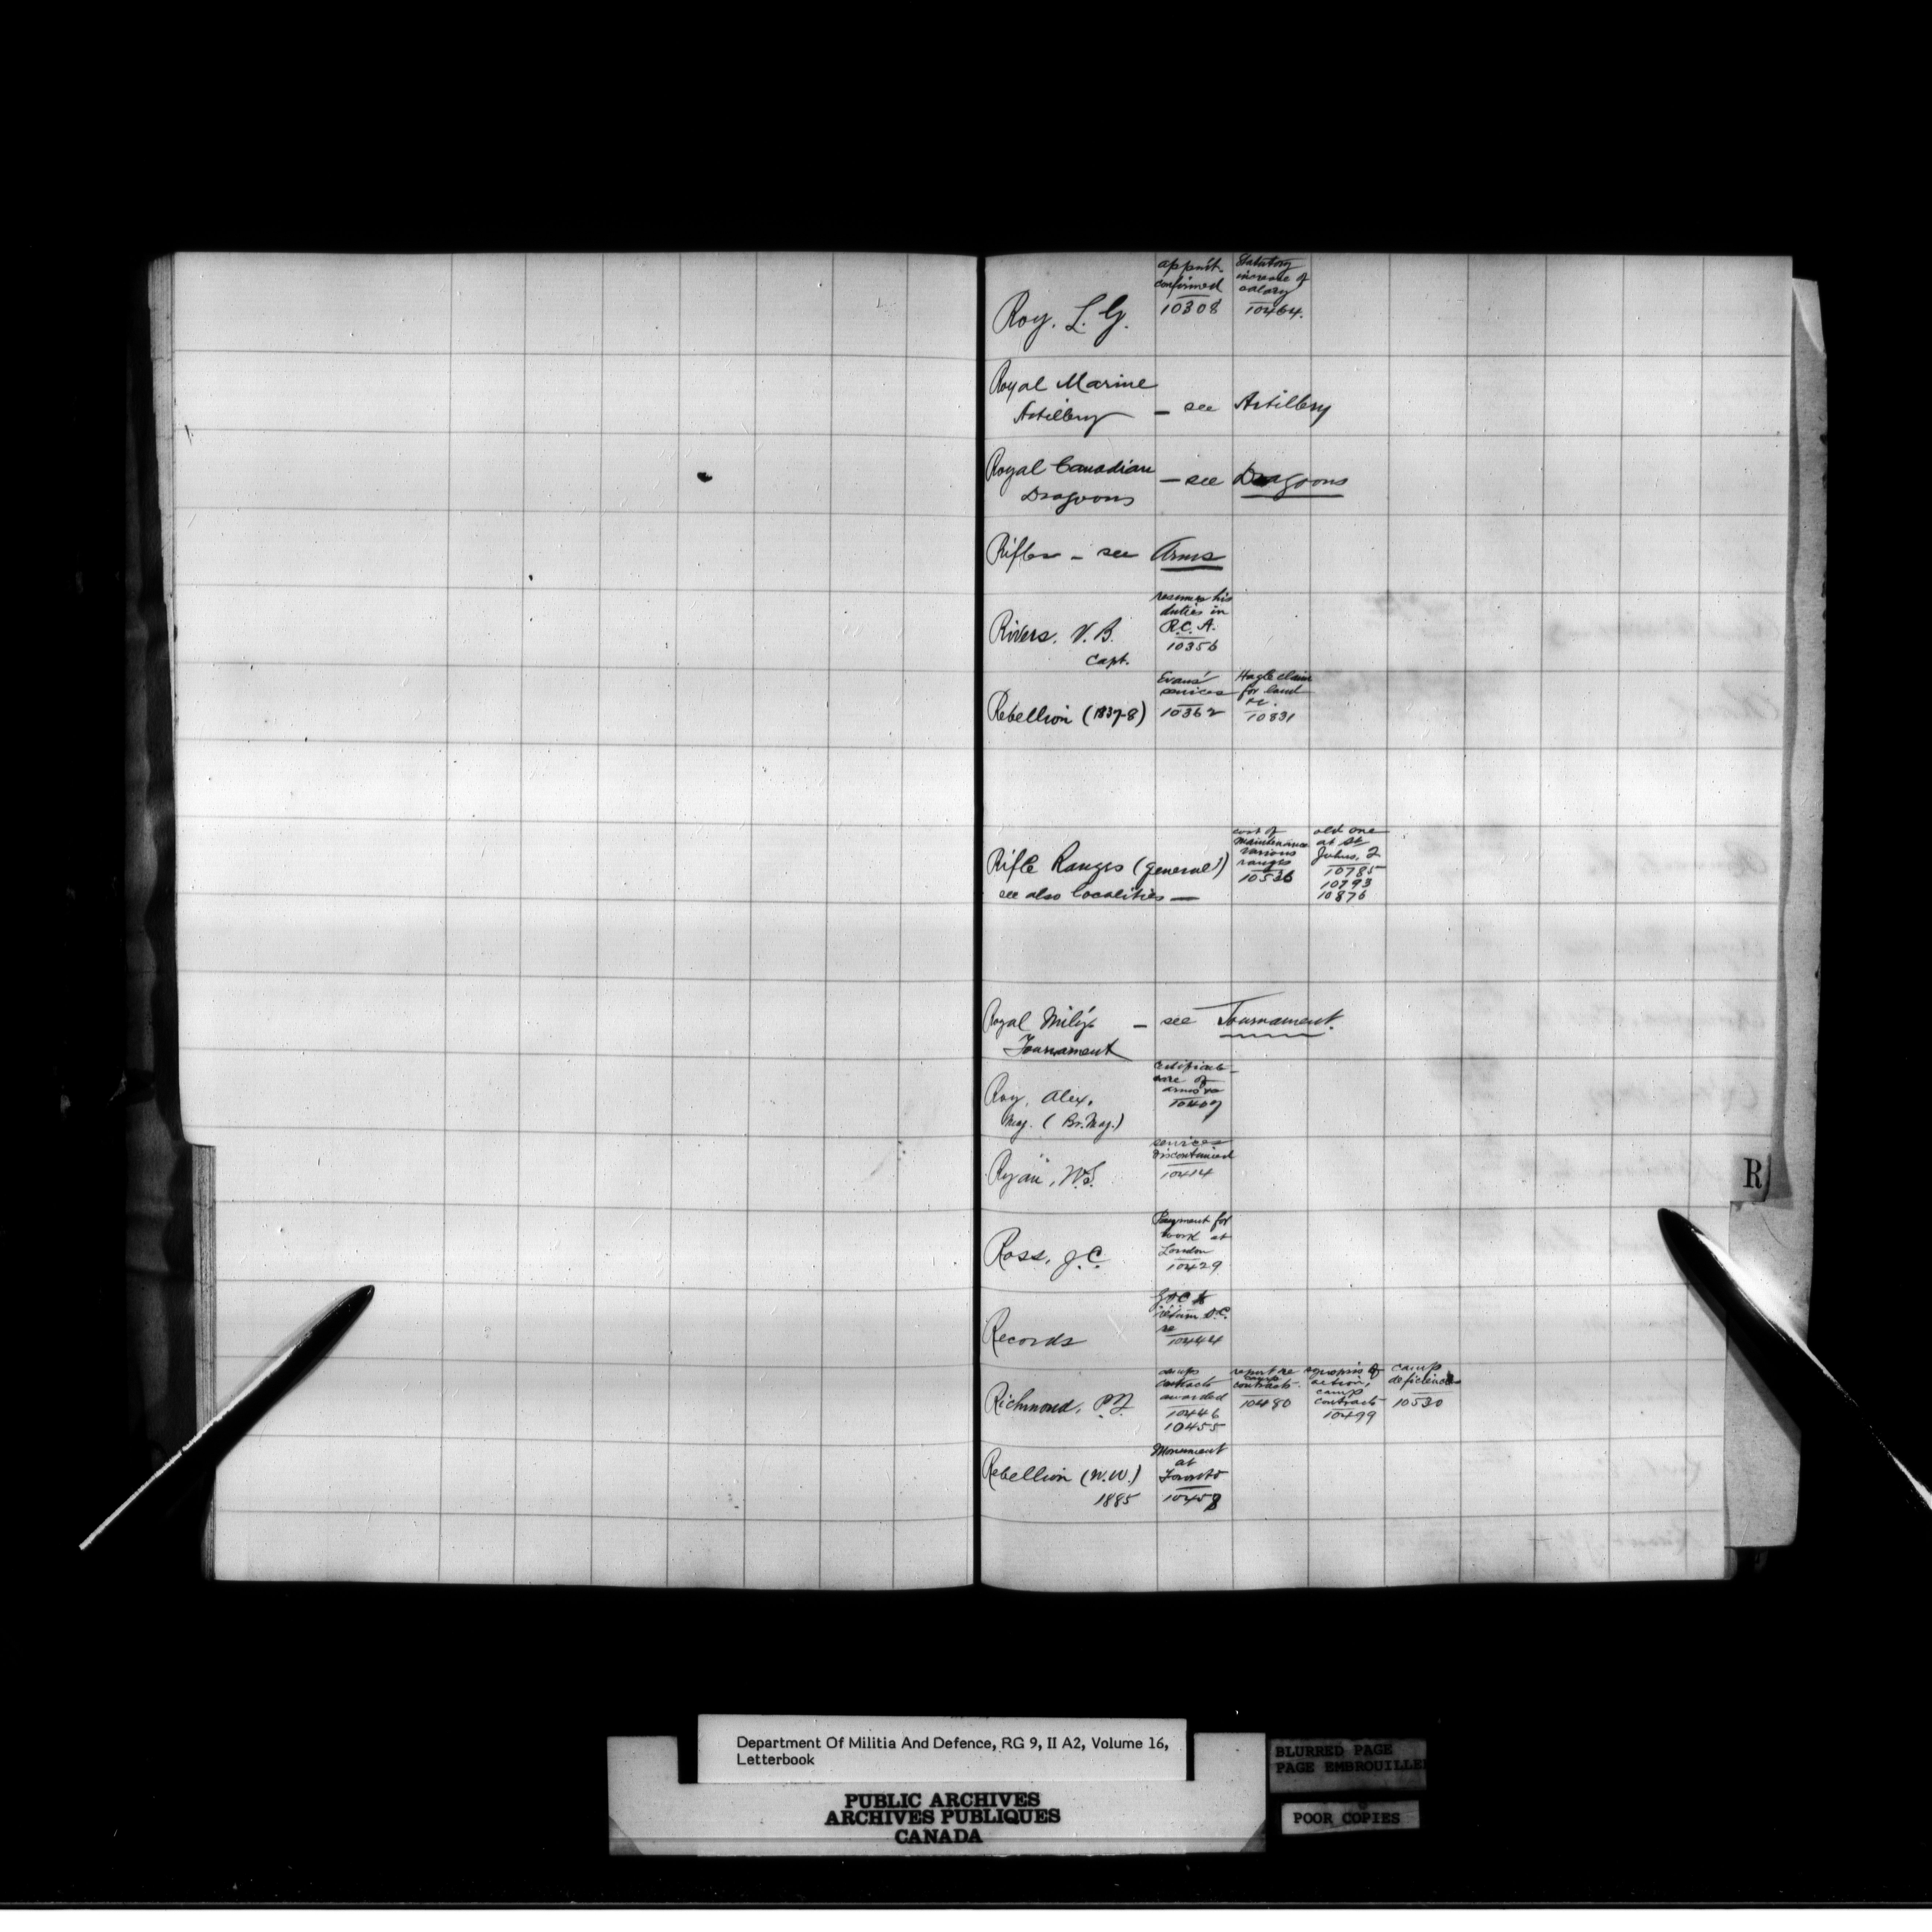 Roy, L. G.
appoint.
confirmed
10308
Statutory
increase of
salary
10464.
Royal Marine
Artillery — see Artillery
Royal Canadian
Dragoons — see Dragoons
Rifles — see Arms
Rivers, V. B.
Capt.
resumes his
duties in
R.C.A.
10356
Rebellion (1837-8)
Evans'
services
10362
Hagle claim
for land
10831
Rifle Ranges (general)
see also localities —
cost of
maintenance
various
ranges
10536
old one
at St
Johns, Q
10785
10793
10876
Royal Mil'y
Tournament — see Tournament.
Roy, Alex.
Maj. (Br. Maj.)
certificate
care of
arms
10407
Ryan, W.S.
services
discontinued
10414
Ross, J.C.
Payment for
work at
London
10429
Records
return
re
10444
Richmond, P.Z
camps
contracts
awarded
10446
10455
report re
camp
contracts
10480
synopsis of
action,
camp
contracts
10499
camp
deficiencies
10530
Rebellion (N.W.)
1885
Monument
at
Toronto
10458
R
Department Of Militia And Defence, RG 9, II A2, Volume 16,
Letterbook
PUBLIC ARCHIVES
ARCHIVES PUBLIQUES
CANADA
BLURRED PAGE
PAGE EMBROUILLEE
POOR COPIES